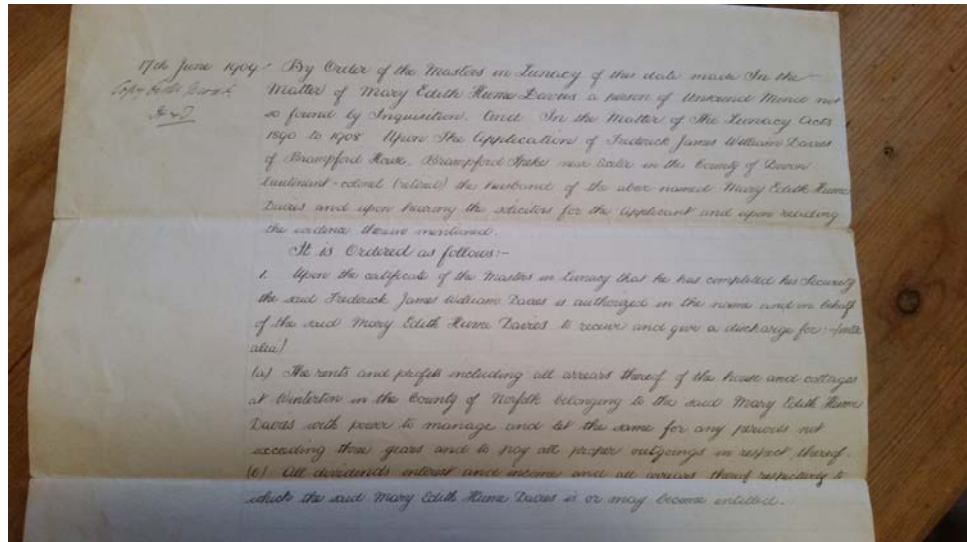 17th June 1909 By Order of the Masters in Lunacy of this date made In the
Matter of Mary Edith Hume Davies a person of Unsound Mind not
so found by Inquisition. And In the Matter of The Lunacy Acts
1890 to 1908 Upon The Application of Frederick James William Davies
of Brampford House, Brampford Speke near Exeter in the County of Devon
Lieutenant-colonel (retired) the husband of the above named Mary Edith Hume
Davies and upon hearing the solicitors for the Applicant and upon reading
the evidence therein mentioned.
It is Ordered as follows:-
1. Upon the certificate of the Masters in Lunacy that he has completed his Security
the said Frederick James William Davies is authorized in the name and on behalf
of the said Mary Edith Hume Davies to receive and give a discharge for:-(inter
alia)
(a) The rents and profits including all arrears thereof of the house and cottages
at Winterton in the County of Norfolk belonging to the said Mary Edith Hume
Davies with power to manage and let the same for any periods not
exceeding three years and to pay all proper outgoings in respect thereof.
All dividends interest and income and all arrears thereof respectively to
which the said Mary Edith Hume Davies is or may become entitled.